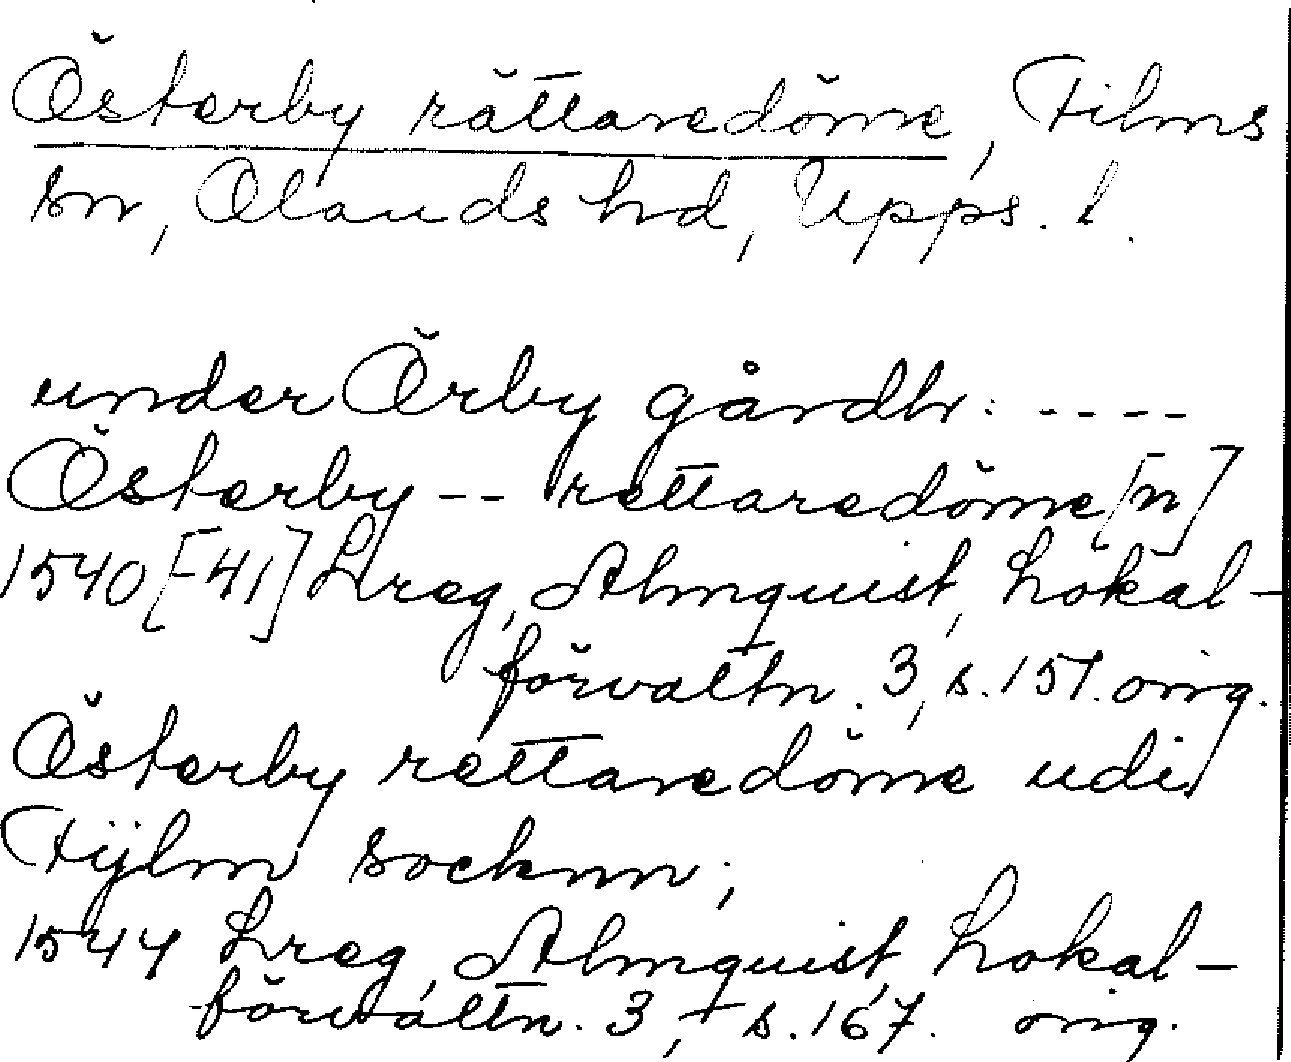 Österby rättaredöme, Films
sn, Olands hd, Upps. l.
under Örby gårdh: ----
Österby -- rettaredöme[n]
1540[-41] Lreg, Almquist, Lokal-
förvaltn. 3, s. 151. orig.
Österby rettaredöme udi
Fijlm socknn;
1544 Lreg, Almquist, Lokal-
förvaltn. 3, s. 167. orig.